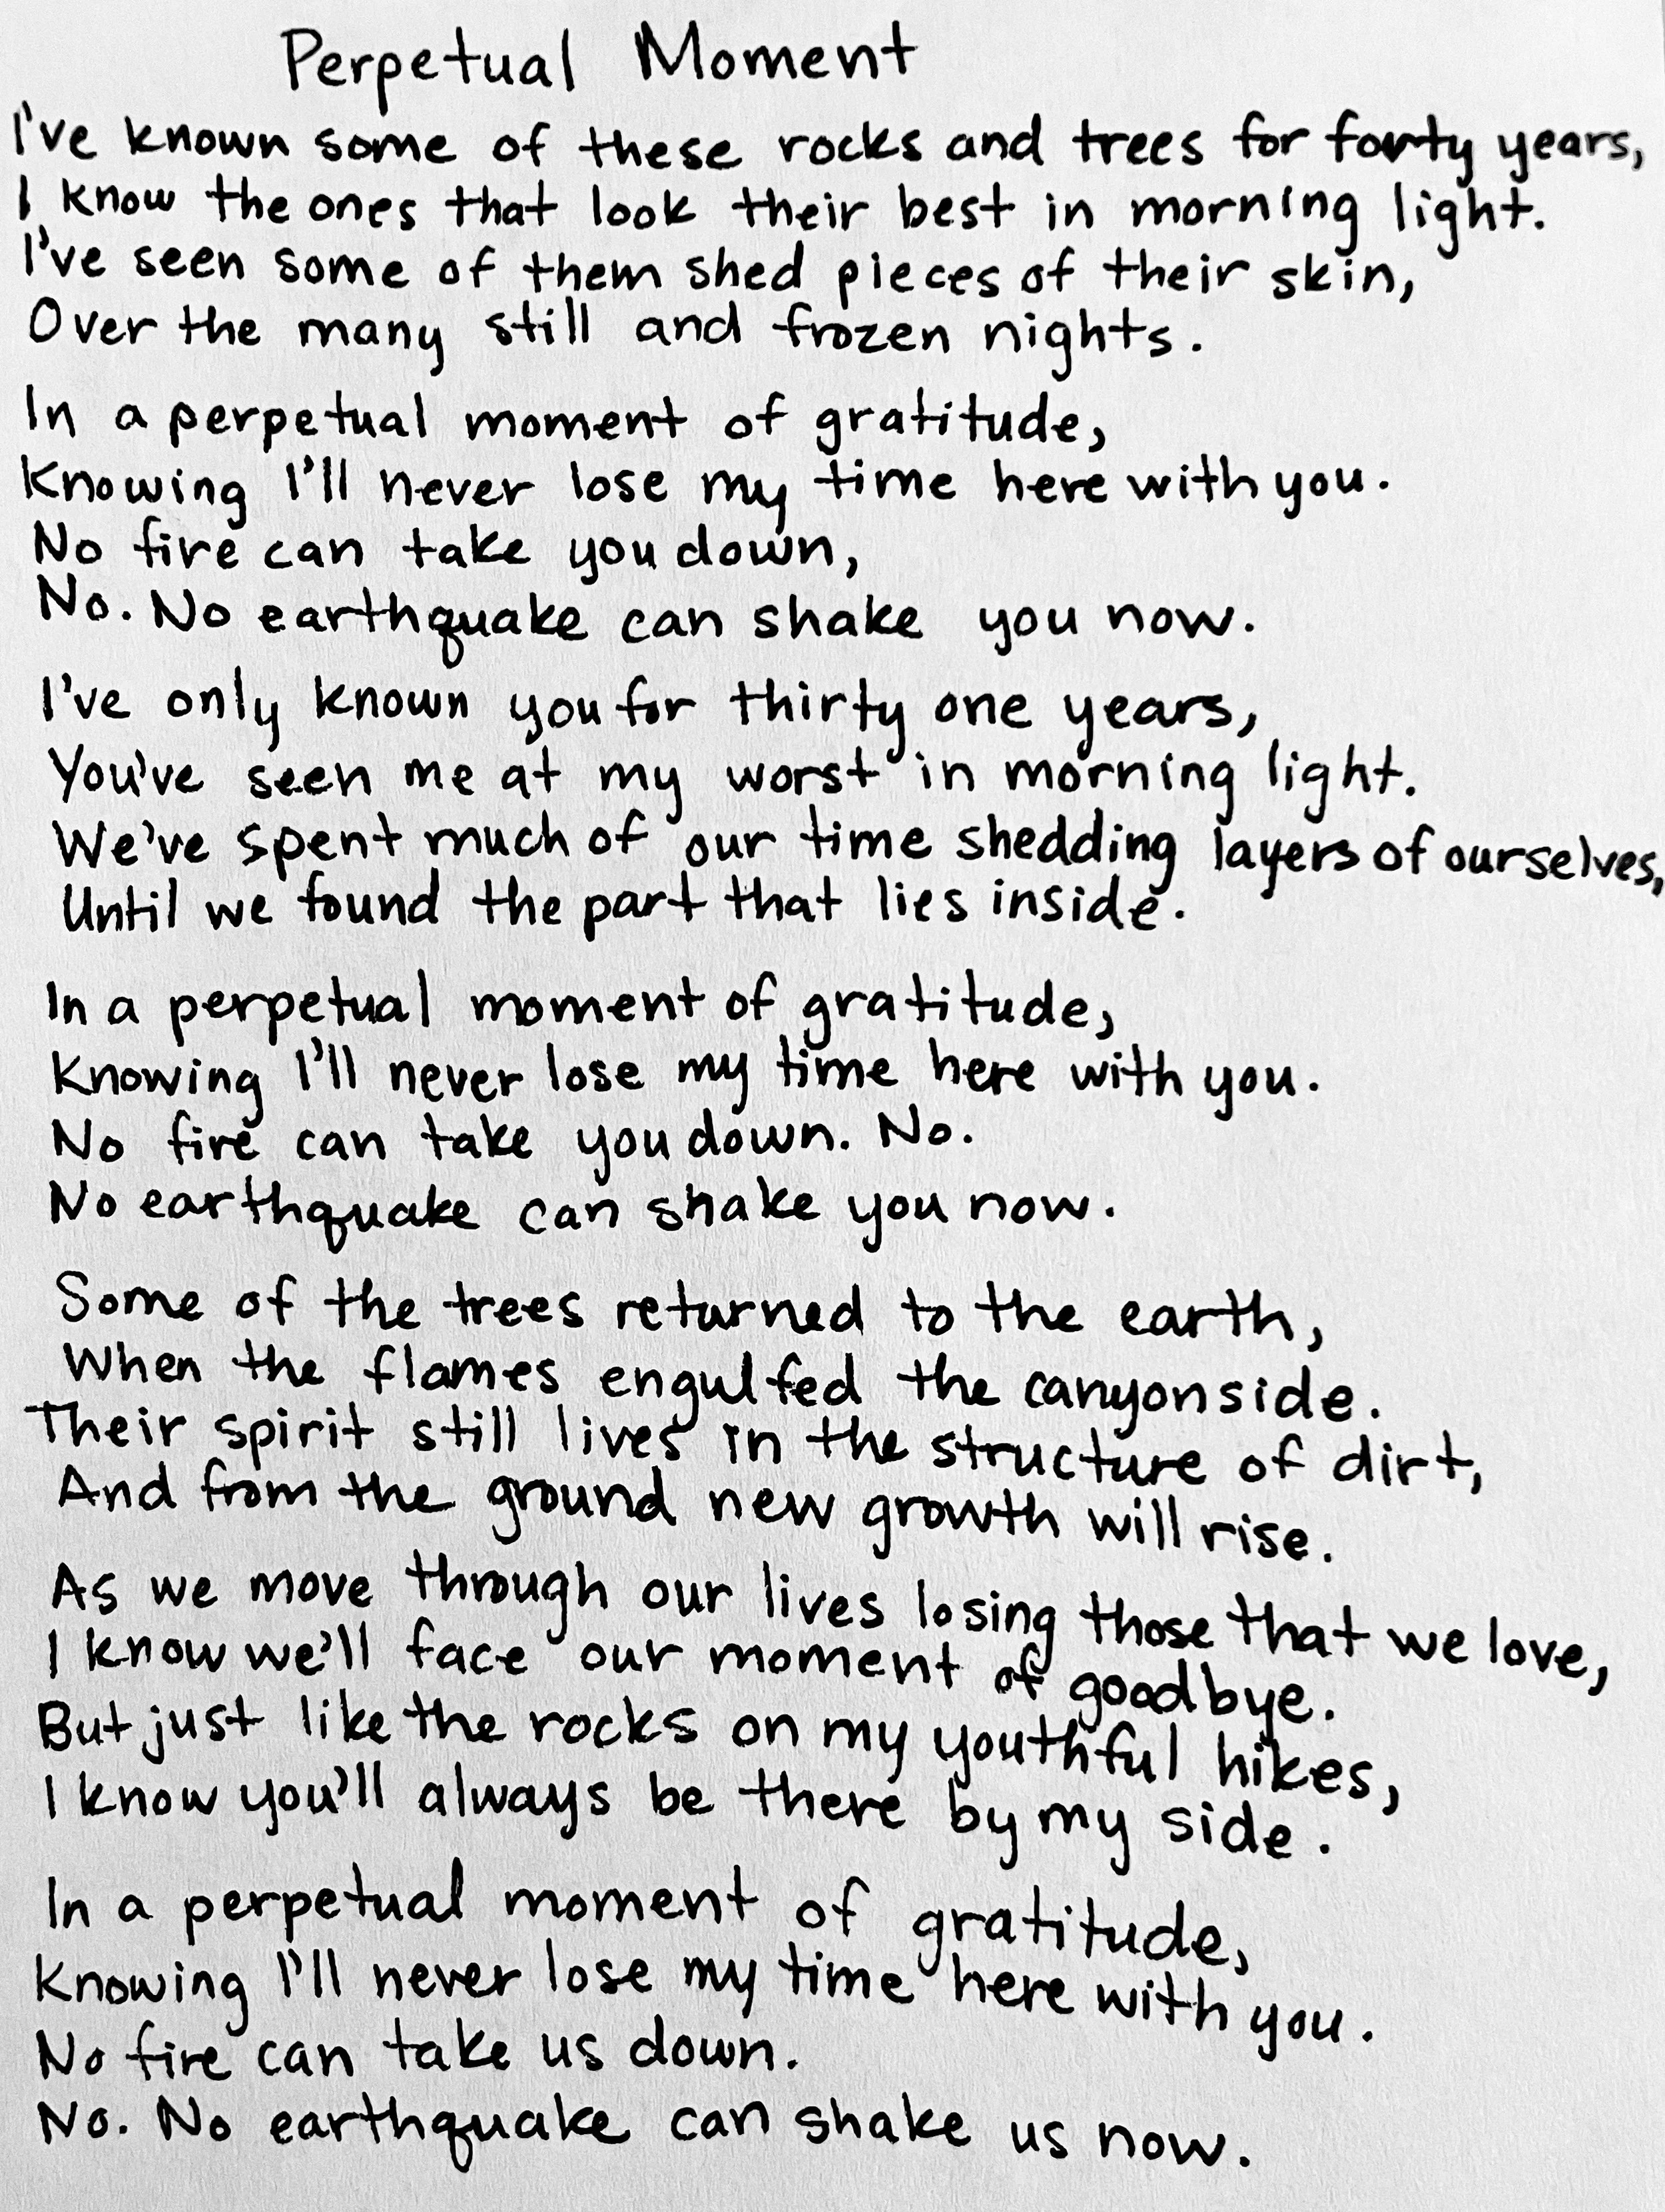 Perpetual Moment
I've known some of these rocks and trees for forty years,
I know the ones that look their best in morning light.
I've seen some of them shed pieces of their skin,
Over the many still and frozen nights.
In a perpetual moment of gratitude,
Knowing I'll never lose my time here with you.
No fire can take you down,
No. No earthquake can shake you now.
I've only known you for thirty one years,
You've seen me at my worst in morning light.
We've spent much of our time shedding layers of ourselves,
Until we found the part that lies inside.
In a perpetual moment of gratitude,
Knowing I'll never lose my time here with you.
No fire can take you down. No.
No earthquake can shake you now.
Some of the trees returned to the earth,
When the flames engulfed the canyonside.
Their spirit still lives in the structure of dirt,
And from the ground new growth will rise.
As we move through our lives losing those that we love,
I know we'll face our moment of goodbye.
But just like the rocks on my youthful hikes,
I know you'll always be there by my side.
In a perpetual moment of gratitude,
Knowing I'll never lose my time here with you.
No fire can take us down.
No. No earthquake can shake us now.